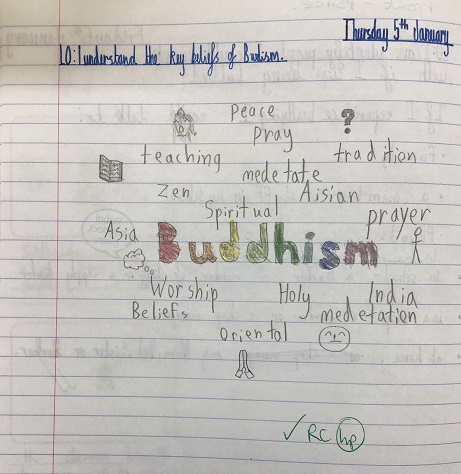 Thursday 5th January
LO: I understand the key beliefs of Budism.
Peace
?
Pray
teaching
tradition
medetate
Zen
Aisian
Spiritual
prayer
Asia
Buddhism
Worship
Holy
India
Beliefs
medetation
oriental
✓ RC hp